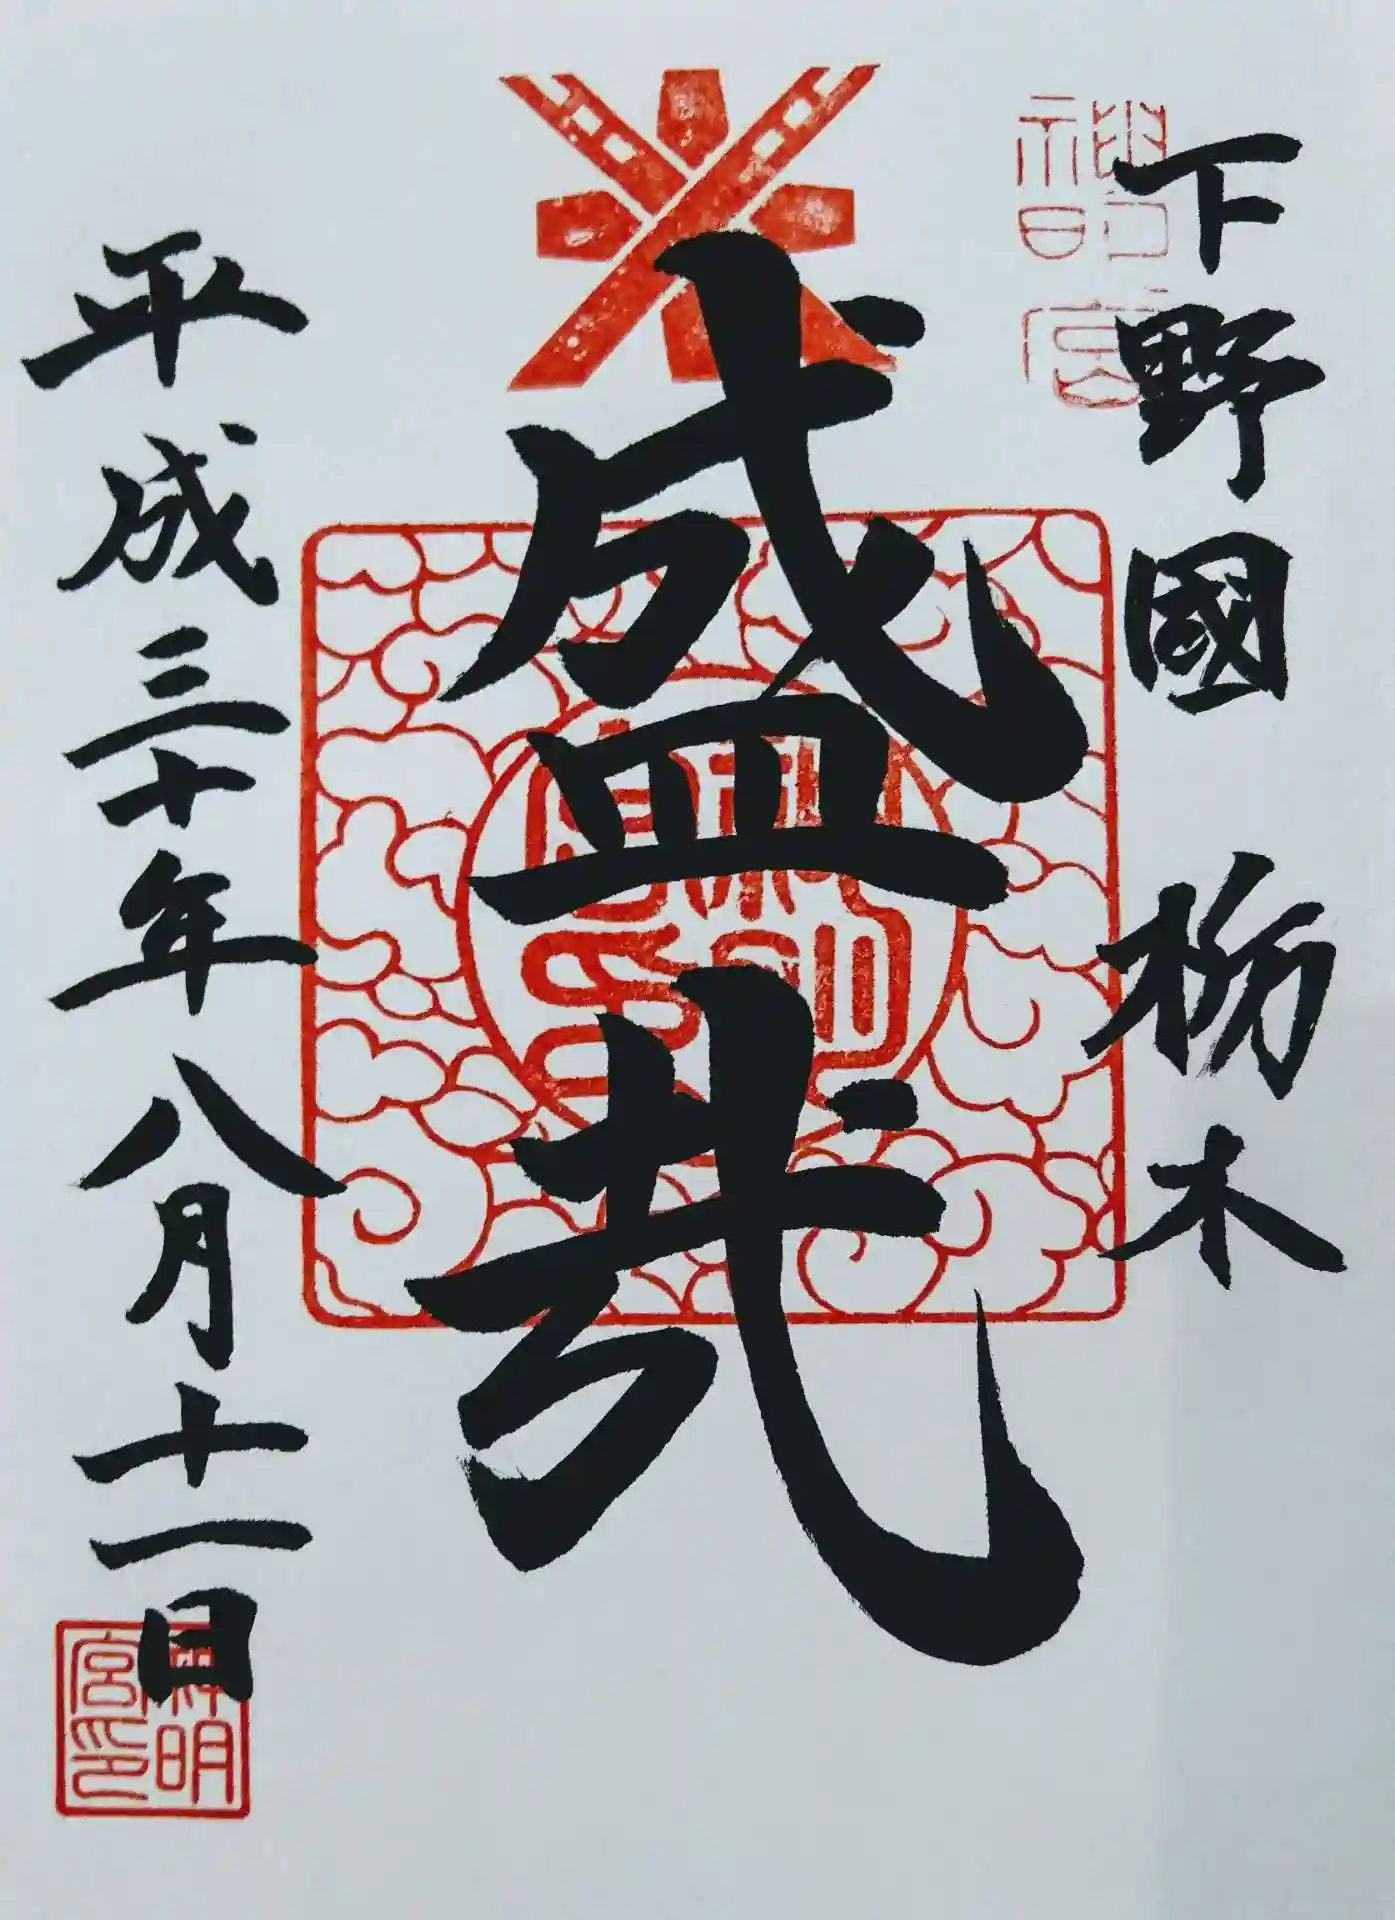 下野國 栃木
神明宮
盛弐
神明宮印
平成三十年八月十一日
神明宮印